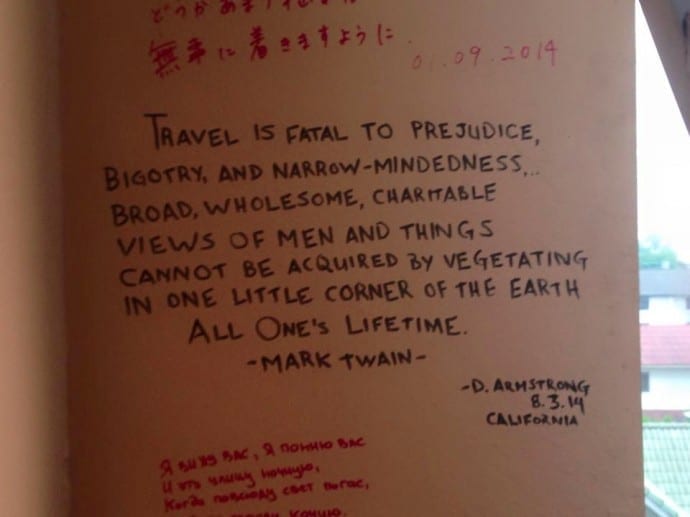 無事に着きますように.
01.09.2014
TRAVEL IS FATAL TO PREJUDICE,
BIGOTRY, AND NARROW-MINDEDNESS...
BROAD, WHOLESOME, CHARITABLE
VIEWS OF MEN AND THINGS
CANNOT BE ACQUIRED BY VEGETATING
IN ONE LITTLE CORNER OF THE EARTH
ALL ONE'S LIFETIME.
-MARK TWAIN-
-D. ARMSTRONG
8.3.14
CALIFORNIA
Я вижу вас, я помню вас
И эту улицу ночную,
Когда повсюду свет погас,